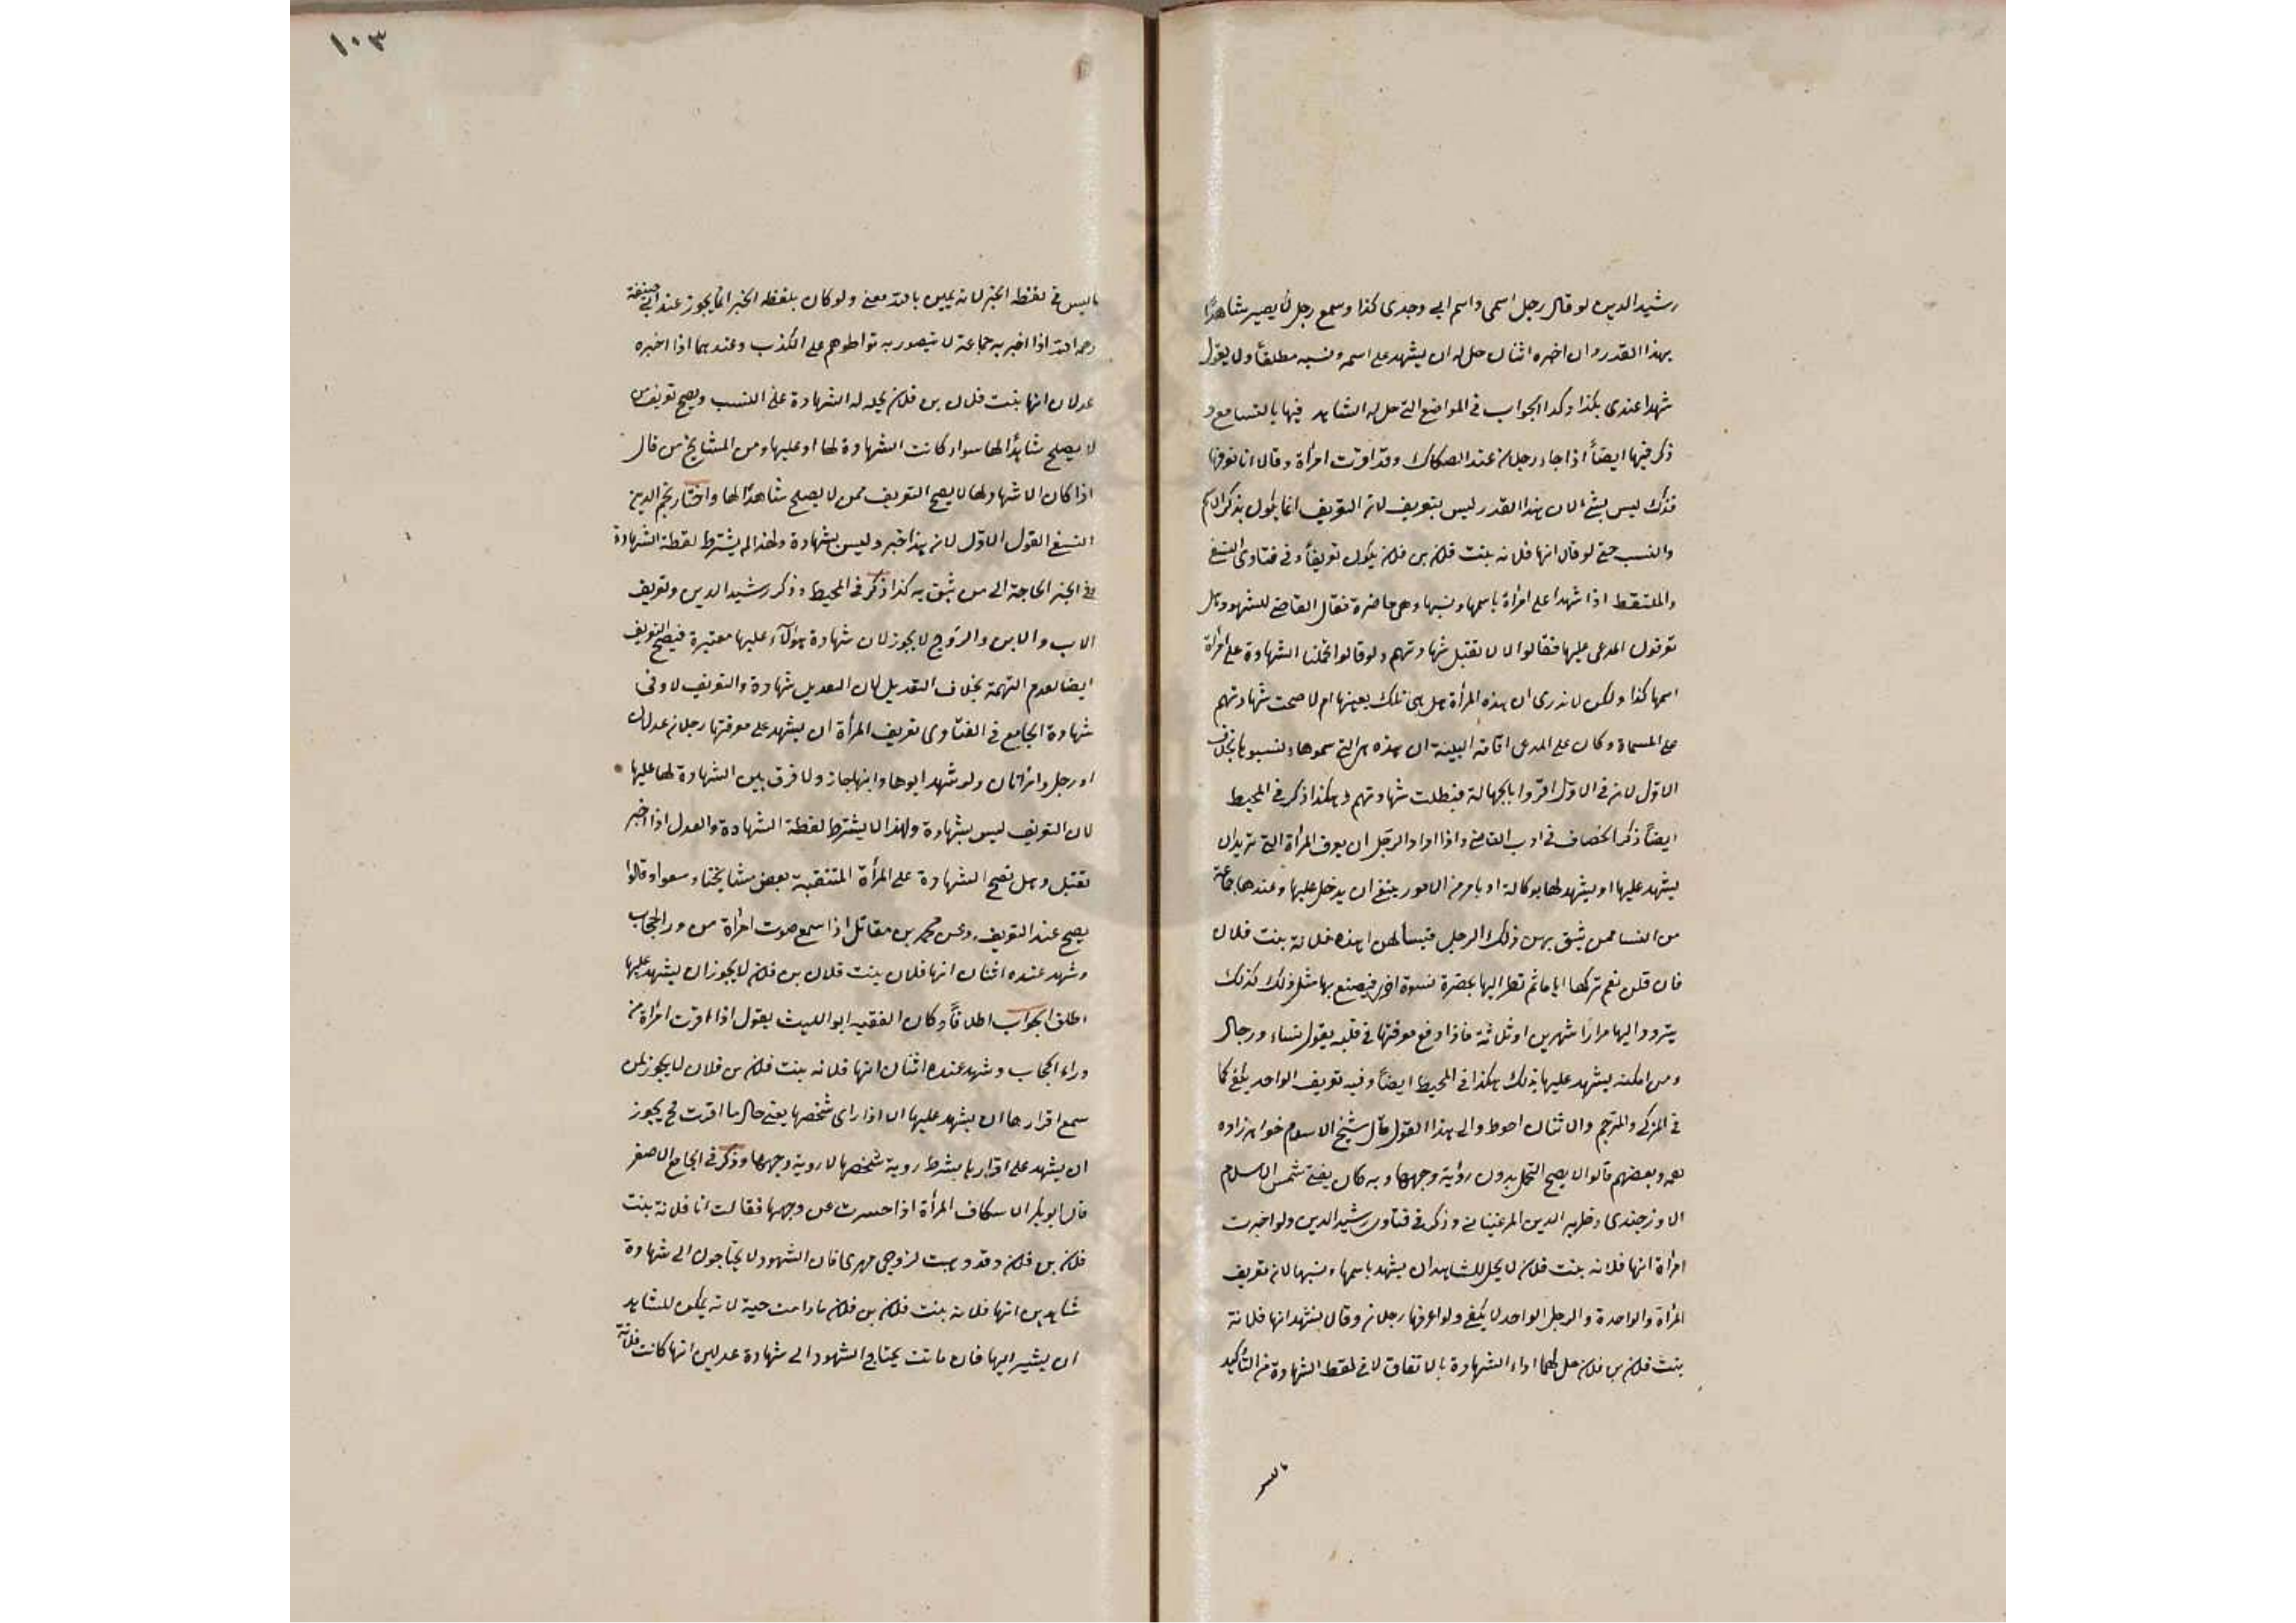 رشيد الدين لو قال رجل اسمى واسم ابى وجدى كذا وسمع رجل لا يصير شاهدًا
بهذا القدر وان اخبره اثنان حل له ان يشهد على اسمه ونسبه مطلقًا ولا يقول
شهدا عندى بكذا وكذا الجواب فى المواضع التى حل له الشاهد فيها بالتسامع و
ذكر فيها ايضًا اذا جاء رجلان عند الصكاك وقد اقرت امرأة وقالا انا نعرفها
فذلك ليس بشئ لان هذا القدر ليس بتعريف لان التعريف انما يكون بذكر الاسم
والنسب حتى لو قال انها فلانه بنت فلان بن فلان يكون تعريفًا وفى فتاوى النسفى
والملتقط اذا شهدا على امرأة باسمها ونسبها وهى حاضرة فقال القاضى للشهود هل
تعرفون المدعى عليها فقالوا لا لا تقبل شهادتهم ولو قالوا تحملنا الشهادة على امرأة
اسمها كذا ولكن لا ندرى ان هذه المرأة هل هى تلك بعينها ام لا صحت شهادتهم
على المسماة وكان على المدعى اقامة البينة ان هذه هى التى سموها ونسبوها بخلاف
الاول لان فى الاول اقروا بالجهالة فبطلت شهادتهم وهكذا ذكر فى المحيط
ايضًا ذكر الخصاف فى ادب القاضى واذا اراد الرجل ان يعرف المرأة التى تريد ان
يشهد عليها او يشهد لها بوكالة او بامر من الامور ينبغى ان يدخل عليها وعندها جماعة
من النسا ممن يثق بهن ذلك الرجل فيسألهن اهذه فلانة بنت فلان
فان قلن نعم تركها اياما ثم نظر اليها بحضرة نسوة اخر فيصنع بها مثل ذلك كذلك
يتردد اليها مرارًا شهرين او ثلاثة فاذا وقع معرفتها فى قلبه بقول نساء ورجال
ومن امكنه يشهد عليها بذلك هكذا فى المحيط ايضًا وفيه تعريف الواحد يكفى كما
فى المزكى والمترجم والاثنان احوط والى هذا القول مال شيخ الاسلام خواهرزاده
وبعضهم قالوا لا يصح التحمل بدون رؤية وجهها وبه كان يفتى شمس الاسلام
الاوزجندى وظهير الدين المرغينانى وذكر فى فتاوى رشيد الدين ولو اخبرت
امرأة انها فلانه بنت فلان لا يحل للشاهد ان يشهد باسمها ونسبها لان تعريف
المرأة الواحدة والرجل الواحد لا يكفى ولو اعرفها رجلان وقالا نشهد انها فلانة
بنت فلان بن فلان حل لهما اداء الشهادة بالاتفاق لان فى لفظ الشهادة من التأكيد
ما ليس
١٠٣
ما ليس فى لفظه الخبر لانه يمين بالله معنى ولو كان بلفظه الخبر انما يجوز عند ابى حنيفة
رحمه الله اذا اخبر به جماعة لا يتصور به تواطوهم على الكذب وعندهما اذا اخبره
عدلان انها بنت فلان بن فلان يحل له الشهادة على النسب ويصح تعريف من
لا يصلح شاهدًا لها سواء كانت الشهادة لها او عليها ومن المشايخ من قال
اذا كان الاشهاد لها لا يصح التعريف ممن لا يصلح شاهدًا لها واختار نجم الدين
النسفى القول الاول لان هذا خبر وليس بشهادة ولهذا لم يشترط لفظة الشهادة
ففى الخبر الحاجة الى من يثق به كذا ذكر فى المحيط وذكر رشيد الدين وتعريف
الاب والابن والزوج لا يجوز لان شهادة هؤلاء عليها معتبرة فيصح التعريف
ايضا لعدم التهمة بخلاف التعديل لان التعديل شهادة والتعريف لا وفى
شهادة الجامع فى الفتاوى تعريف المرأة ان يشهد على معرفتها رجلان عدلان
او رجل وامرأتان ولو شهد ابوها وابنها جاز ولا فرق بين الشهادة لها عليها
لان التعريف ليس بشهادة ولهذا لا يشترط لفظة الشهادة والعدل اذا اخبر
تقبل وهل تصح الشهادة على المرأة المتنقبة بعض مشايخنا وسعوا وقالوا
يصح عند التعريف وعن محمد بن مقاتل اذا سمع صوت امرأة من ورا الحجاب
وشهد عنده اثنان انها فلان بنت فلان بن فلان لا يجوز ان يشهد عليها
اطلق الجواب اطلاقًا وكان الفقيه ابو الليث يقول اذا اقرت امرأة من
وراء الحجاب وشهد عنده اثنان انها فلانه بنت فلان بن فلان لا يجوز لمن
سمع اقرارها ان يشهد عليها الا اذا راى شخصها يعنى حال ما اقرت فح يجوز
ان يشهد على اقرارها بشرط روية شخصها لا روية وجهها وذكر فى الجامع الاصغر
قال ابو بكر الاسكاف المرأة اذا حسرت عن وجهها فقالت انا فلانة بنت
فلان بن فلان وقد وهبت لزوجى مهرى فان الشهود لا يحتاجون الى شهادة
شاهدين انها فلانه بنت فلان بن فلان ما دامت حية لانه يمكن للشاهد
ان يشير اليها فان ماتت يحتاج الشهود الى شهادة عدلين انها كانت فلانة